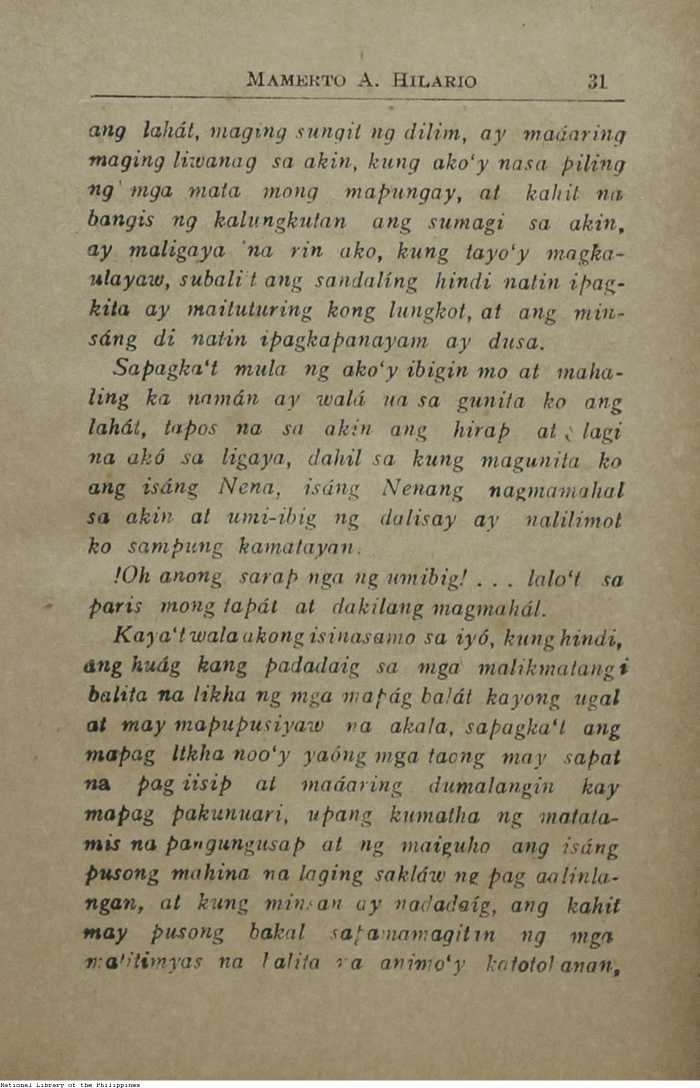 MAMERTO A. HILARIO 31
ang lahát, maging sungit ng dilim, ay madaring
maging liwanag sa akin, kung ako‘y nasa piling
ng mga mata mong mapungay, at kahit na
bangis ng kalungkutan ang sumagi sa akin,
ay maligaya na rin ako, kung tayo‘y magka-
ulayaw, subali't ang sandalíng hindi natin ipag-
kita ay maituturing kong lungkot, at ang min-
sáng di natin ipagkapanayam ay dusa.
Sapagka‘t mula ng ako‘y ibigin mo at maha-
ling ka namán ay walá na sa gunita ko ang
lahát, tapos na sa akin ang hirap at lagi
na akó sa ligaya, dahil sa kung magunita ko
ang isáng Nena, isáng Nenang nagmamahal
sa akin at umi-ibig ng dalisay ay nalilimot
ko sampung kamatayan.
!Oh anong sarap nga ng umibig! . . . lalo‘t sa
paris mong tapát at dakilang magmahál.
Kaya‘t wala akong isinasamo sa iyó, kung hindi,
ang huág kang padadaig sa mga malikmatang i
balita na likha ng mga mapág balát kayong ugal
at may mapupusiyaw na akala, sapagka‘t ang
mapag ltkha noo‘y yaóng mga taong may sapat
na pag iisip at madaring dumalangin kay
mapag pakunuari, upang kumatha ng matata-
mis na pangungusap at ng maiguho ang isáng
pusong mahina na laging sakláw ng pag aalinla-
ngan, at kung minsan ay nadadaig, ang kahit
may pusong bakal ng mga
na balita na animo‘y katotohanan,
National Library of the Philippines